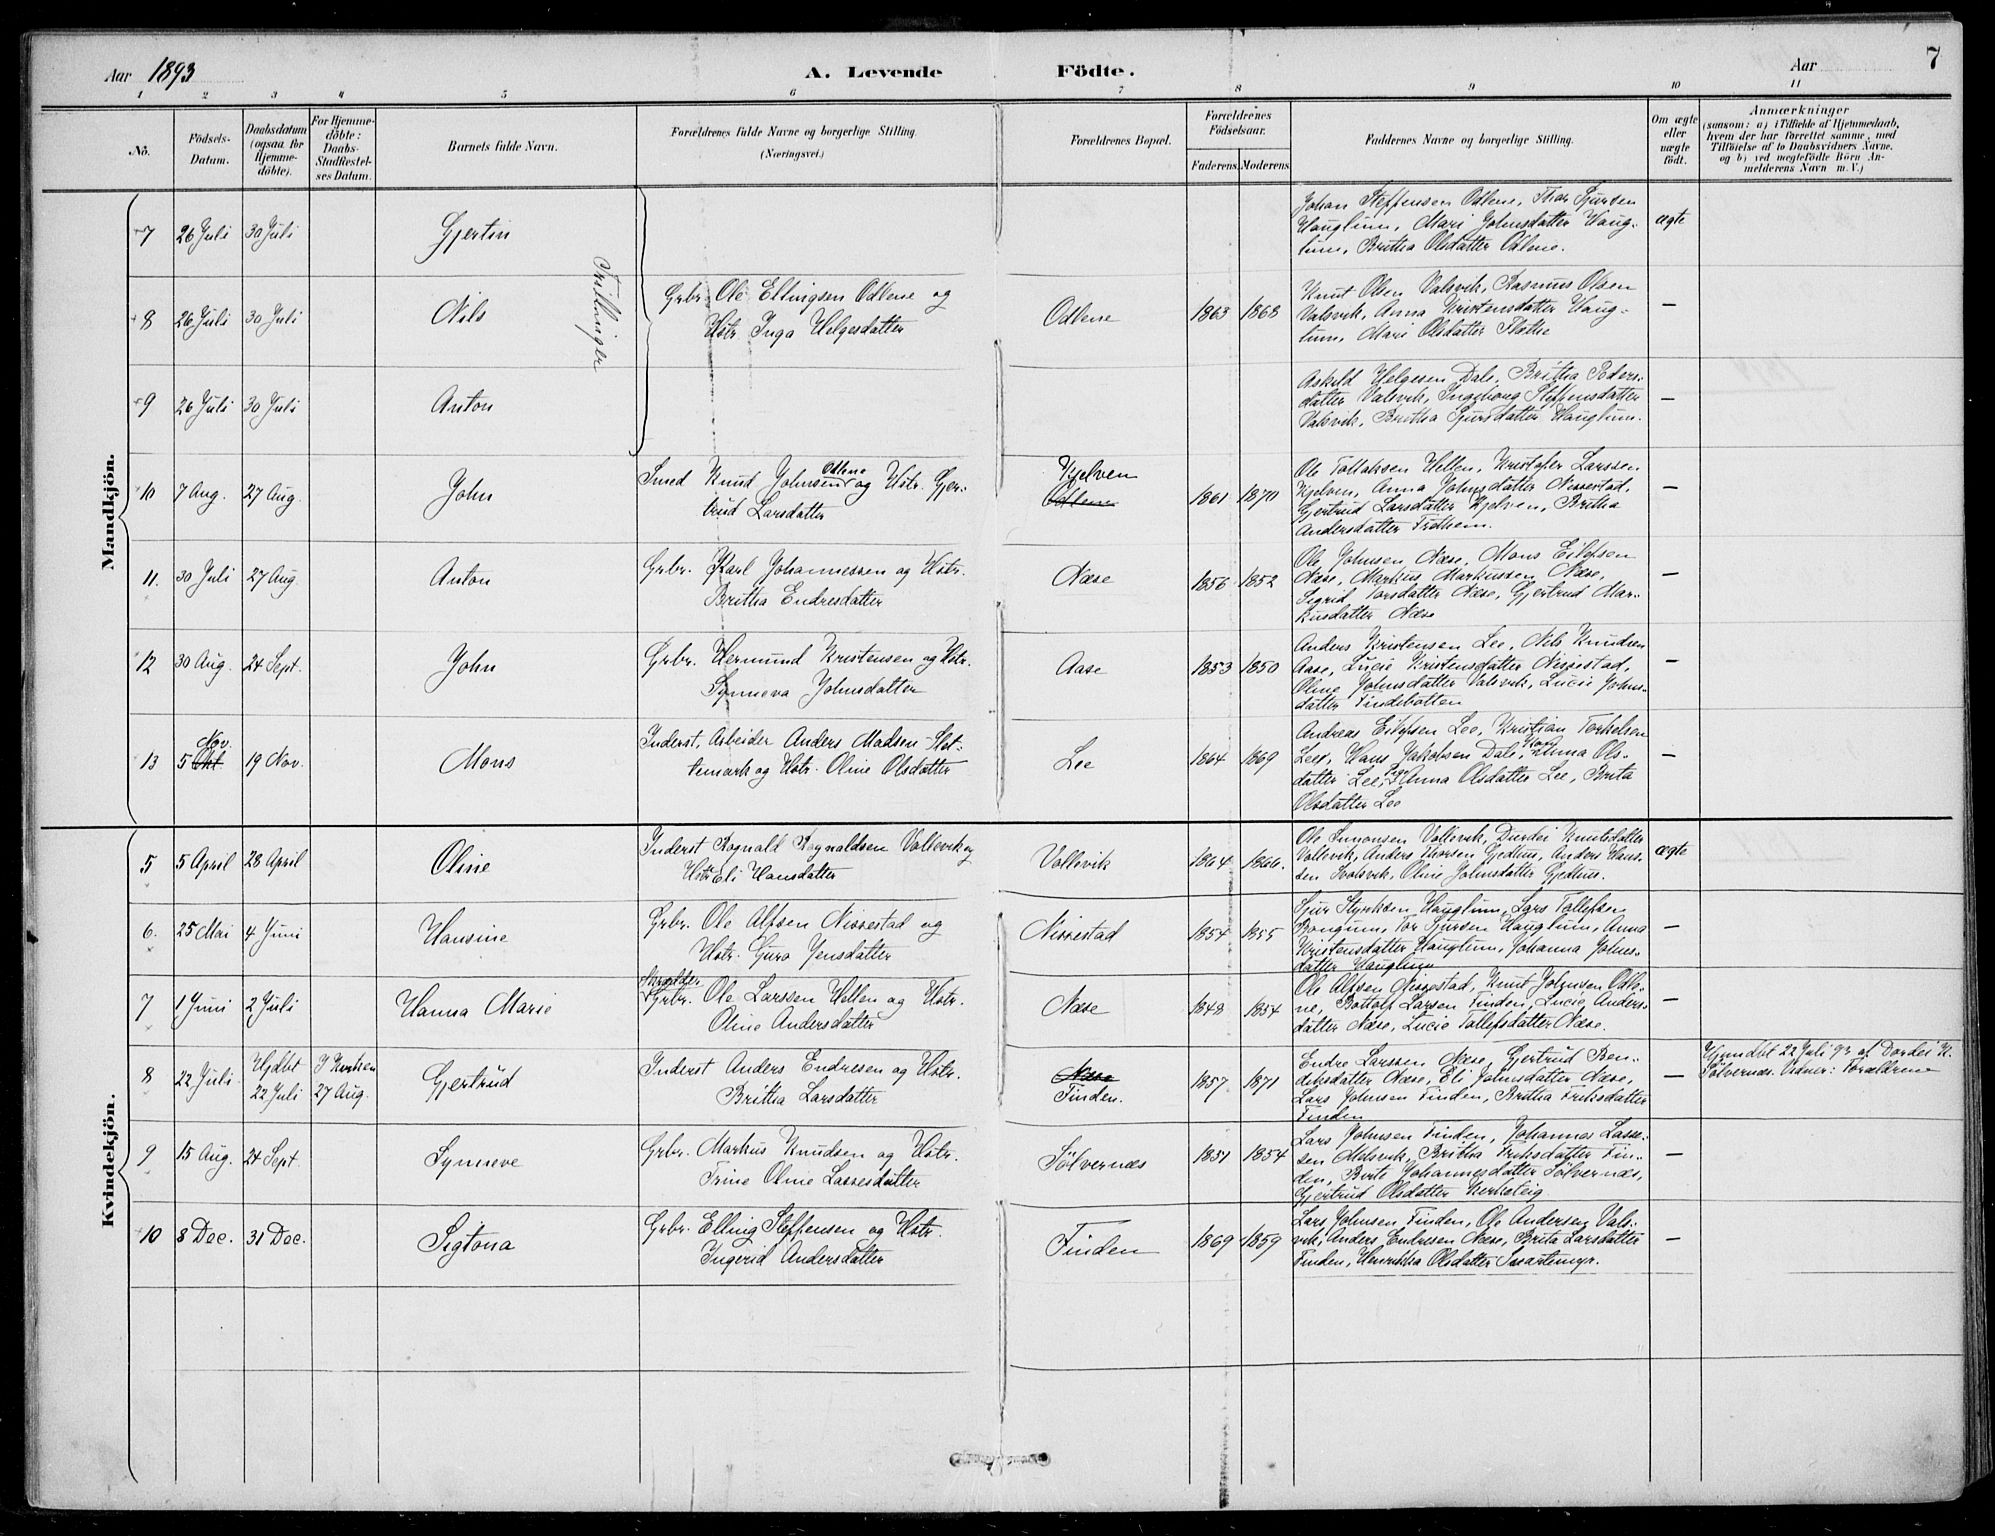 Aar 1893
A. Levende Födte.
Aar
7
1 2 3 4 5 6 7 8 9 10 11
No.
Födsels-Datum.
Daabsdatum (ogsaa for Hjemmedöbte).
For Hjemmedöbte: Daabs-Stadfæstelses Datum.
Barnets fulde Navn.
Forældrenes fulde Navne og borgerlige Stilling. (Næringsvei.)
Forældrenes Bopæl.
Forældrenes Födselsaar.
Faderens. Moderens.
Faddernes Navne og borgerlige Stilling.
Om ægte eller uægte födt.
Anmærkninger
(saasom: a) i Tilfælde af Hjemmedaab,
hvem der har forrettet samme, med
Tilföielse af to Daabsvidners Navne,
og b) ved uægtefödte Börn An-
melderens Navn m. V.)
Mandkjön.
Trillinger
7 26 Juli 30 Juli Gjertin
Johan Steffensen Odbene, Thor Sjursen
Hauglum, Mari Johnsdatter Haug-
lum, Britha Olsdatter Odbene.
ægte
8 26 Juli 30 Juli Nils
Grbr. Ole Ellingsen Odbene og
Hstr. Inga Helgesdatter
Odbene 1863 1868
Knut Olsen Valsvik, Rasmus Olsen
Valsvik, Anna Kristensdatter Haug-
lum, Mari Olsdatter Flatte
—
9 26 Juli 30 Juli Anton
Askeld Helgesen Dale, Britha Peders-
datter Valsvik, Ingeborg Steffensdatter
Valsvik, Britha Sjursdatter Hauglum.
—
10 7 Aug. 27 Aug. John
Smed Knud Johnsen Odbene og Hstr. Gjer-
trud Larsdatter
Kjelven
Odbene
1861 1870
Ole Tollaksen Hellen, Kristofer Larssen
Kjelven, Anna Johnsdatter Nissestad,
Gjertrud Larsdatter Kjelven, Britha
Andersdatter Frethem.
—
11. 30 Juli 27 Aug. Anton
Grbr. Karl Johannessen og Hstr.
Britha Endresdatter
Næse 1856 1852
Ole Johnsen Næse, Mons Eilefsen
Næse, Markus Markussen Næse,
Sigrid Torsdatter Næse, Gjertrud Mar-
kusdatter Næse
—
12 30 Aug. 24 Sept. John
Grbr. Hermund Kristensen og Hstr.
Synneva Johnsdatter
Aase 1853 1850
Anders Kristensen Lee, Nils Knudsen
Aase, Lucie Kristensdatter Nissestad,
Oline Johnsdatter Valsvik, Lucie Johns-
datter Findebotten
—
13 5 Okt. Nov. 19 Nov. Mons
Inderst, Arbeider Anders Madsen Slet-
temark og Hstr. Oline Olsdatter
Lee 1864 1869
Andreas Eilefsen Lee, Kristian Torkelsen
Lee, Hans Jakobsen Dale, Anna Ols-
datter Lee, Anna Olsdatter Lee, Brita
Olsdatter Lee
—
Kvindekjön.
5 5 April 28 April Oline
Inderst Rognald Rognaldsen Vollevik og
Hstr Eli Hansdatter
Vollevik 1864 1866.
Ole Simonsen Vollevik, Durdei Knutsdatter
Vollevik, Anders Thorsen Gjedhus, Anders Han-
sen Valsvik, Oline Johnsdatter Gjedhus.
ægte
6. 25 Mai 4 Juni Hansine
Grbr. Ole Alfsen Nissestad og
Hstr. Guro Jensdatter
Nissestad 1854 1855
Sjur Styrksen Hauglum, Lars Tollefsen
Bongum, Tor Sjursen Hauglum, Anna
Kristensdatter Hauglum, Johanna Johns-
datter Hauglum
—
7 1 Juni 2 Juli Hanna Marie
Grbr. Ole Larssen Hellen og Hstr.
Oline Andersdatter
Næse 1848 1854
Ole Alfsen Nissestad, Knut Johnsen Odbe-
ne, Bottolf Larsen Finden, Lucie Anders-
datter Næse, Lucie Tollefsdatter Næse.
—
8 22 Juli. Hjdbt 22 Juli I Kirken 27 Aug. Gjertrud
Inderst Anders Endresen og Hstr.
Britha Larsdatter
Næse
Finden.
1857 1871
Endre Larssen Næse, Gjertrud Ben-
diksdatter Næse, Eli Johnsdatter Næse,
Lars Johnsen Finden, Britha Eriksdatter
Finden
—
Hjmdbt 22 Juli 93 af Dordei K.
Sølvernæs. Vidner: Forældrene
9 15 Aug. 24 Sept. Synneve
Grbr. Markus Knudsen og Hstr.
Trine Oline Lassesdatter
Sølvernæs 1851 1854
Lars Johnsen Finden, Johannes Lasse-
sen Melsvik, Britha Eriksdatter Fin-
den, Berte Johannesdatter Sølvernæs,
Gjertrud Olsdatter Kirketeig
—
10 8 Dec. 31 Dec. Sigtona
Grbr. Elling Steffensen og Hstr.
Ingerid Andersdatter
Finden 1869 1859
Lars Johnsen Finden, Ole Andersen Vals-
vik, Anders Endresen Næse, Brita Larsdatter
Finden, Henrikka Olsdatter Svartemyr.
—